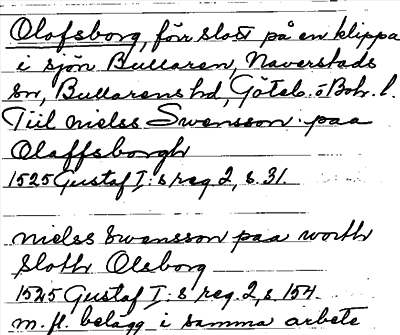 Olofsborg, förr slott på en klippa
i sjön Bullaren, Naverstads
sn, Bullarens hd, Göteb. o Boh. l.
Till nielss Swensson paa
Olaffsborgh
1525 Gustaf I:s reg 2, s. 31.
nielss Swensson paa worth
Sloth Olsborg
1525 Gustaf I:s reg. 2, s. 154.
m. fl. belägg i samma arbete